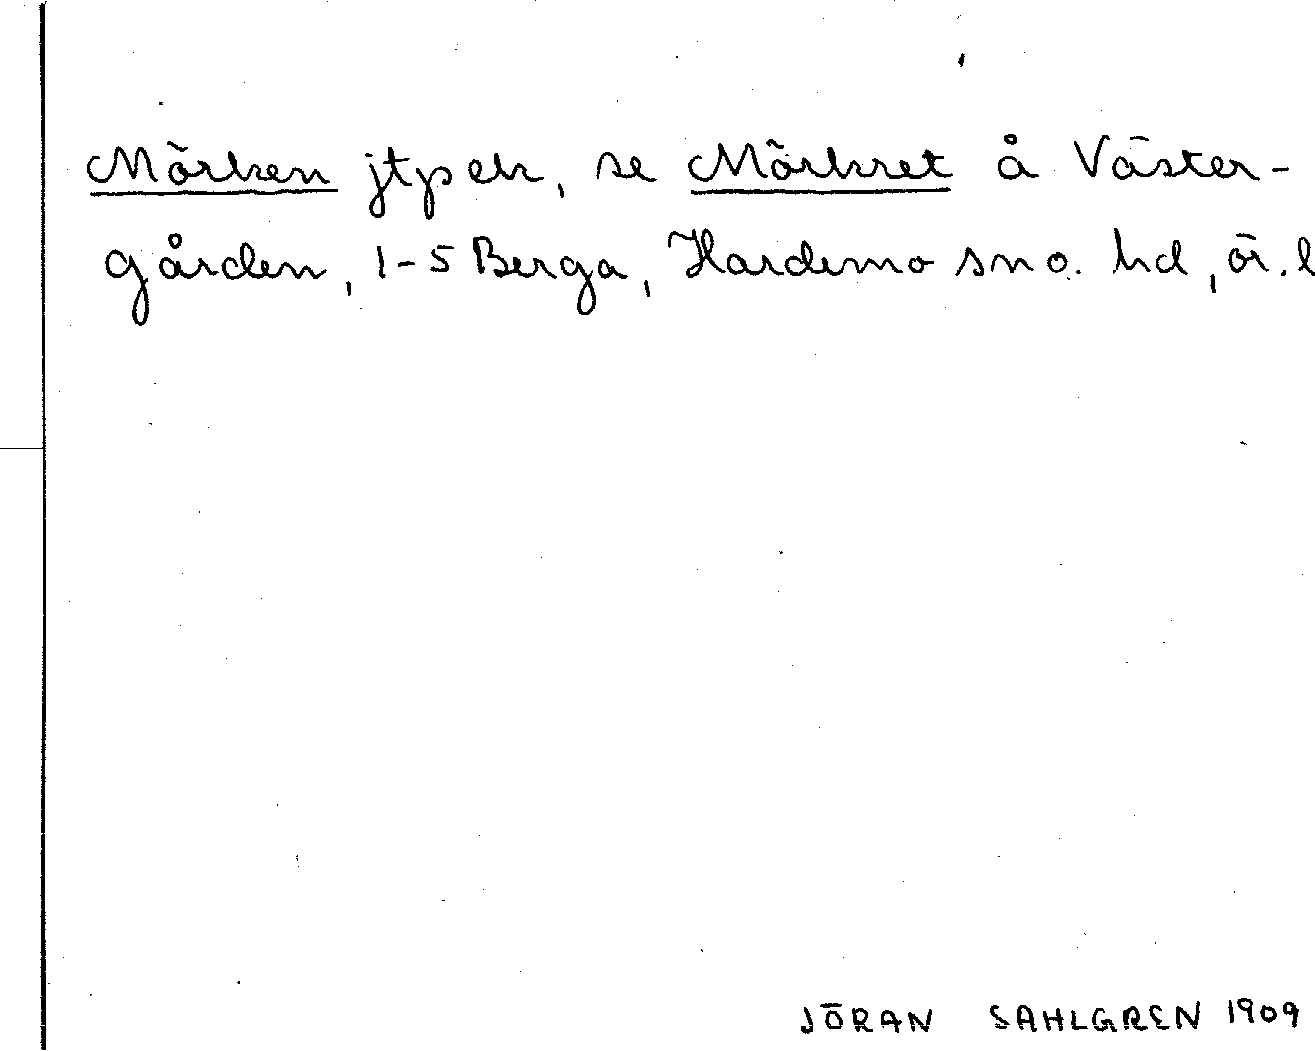 Mörken jtpek, se Mörkret å Väster-
gården, 1-5 Berga, Hardemo sn o. hd, ör. l
JÖRAN SAHLGREN 1909